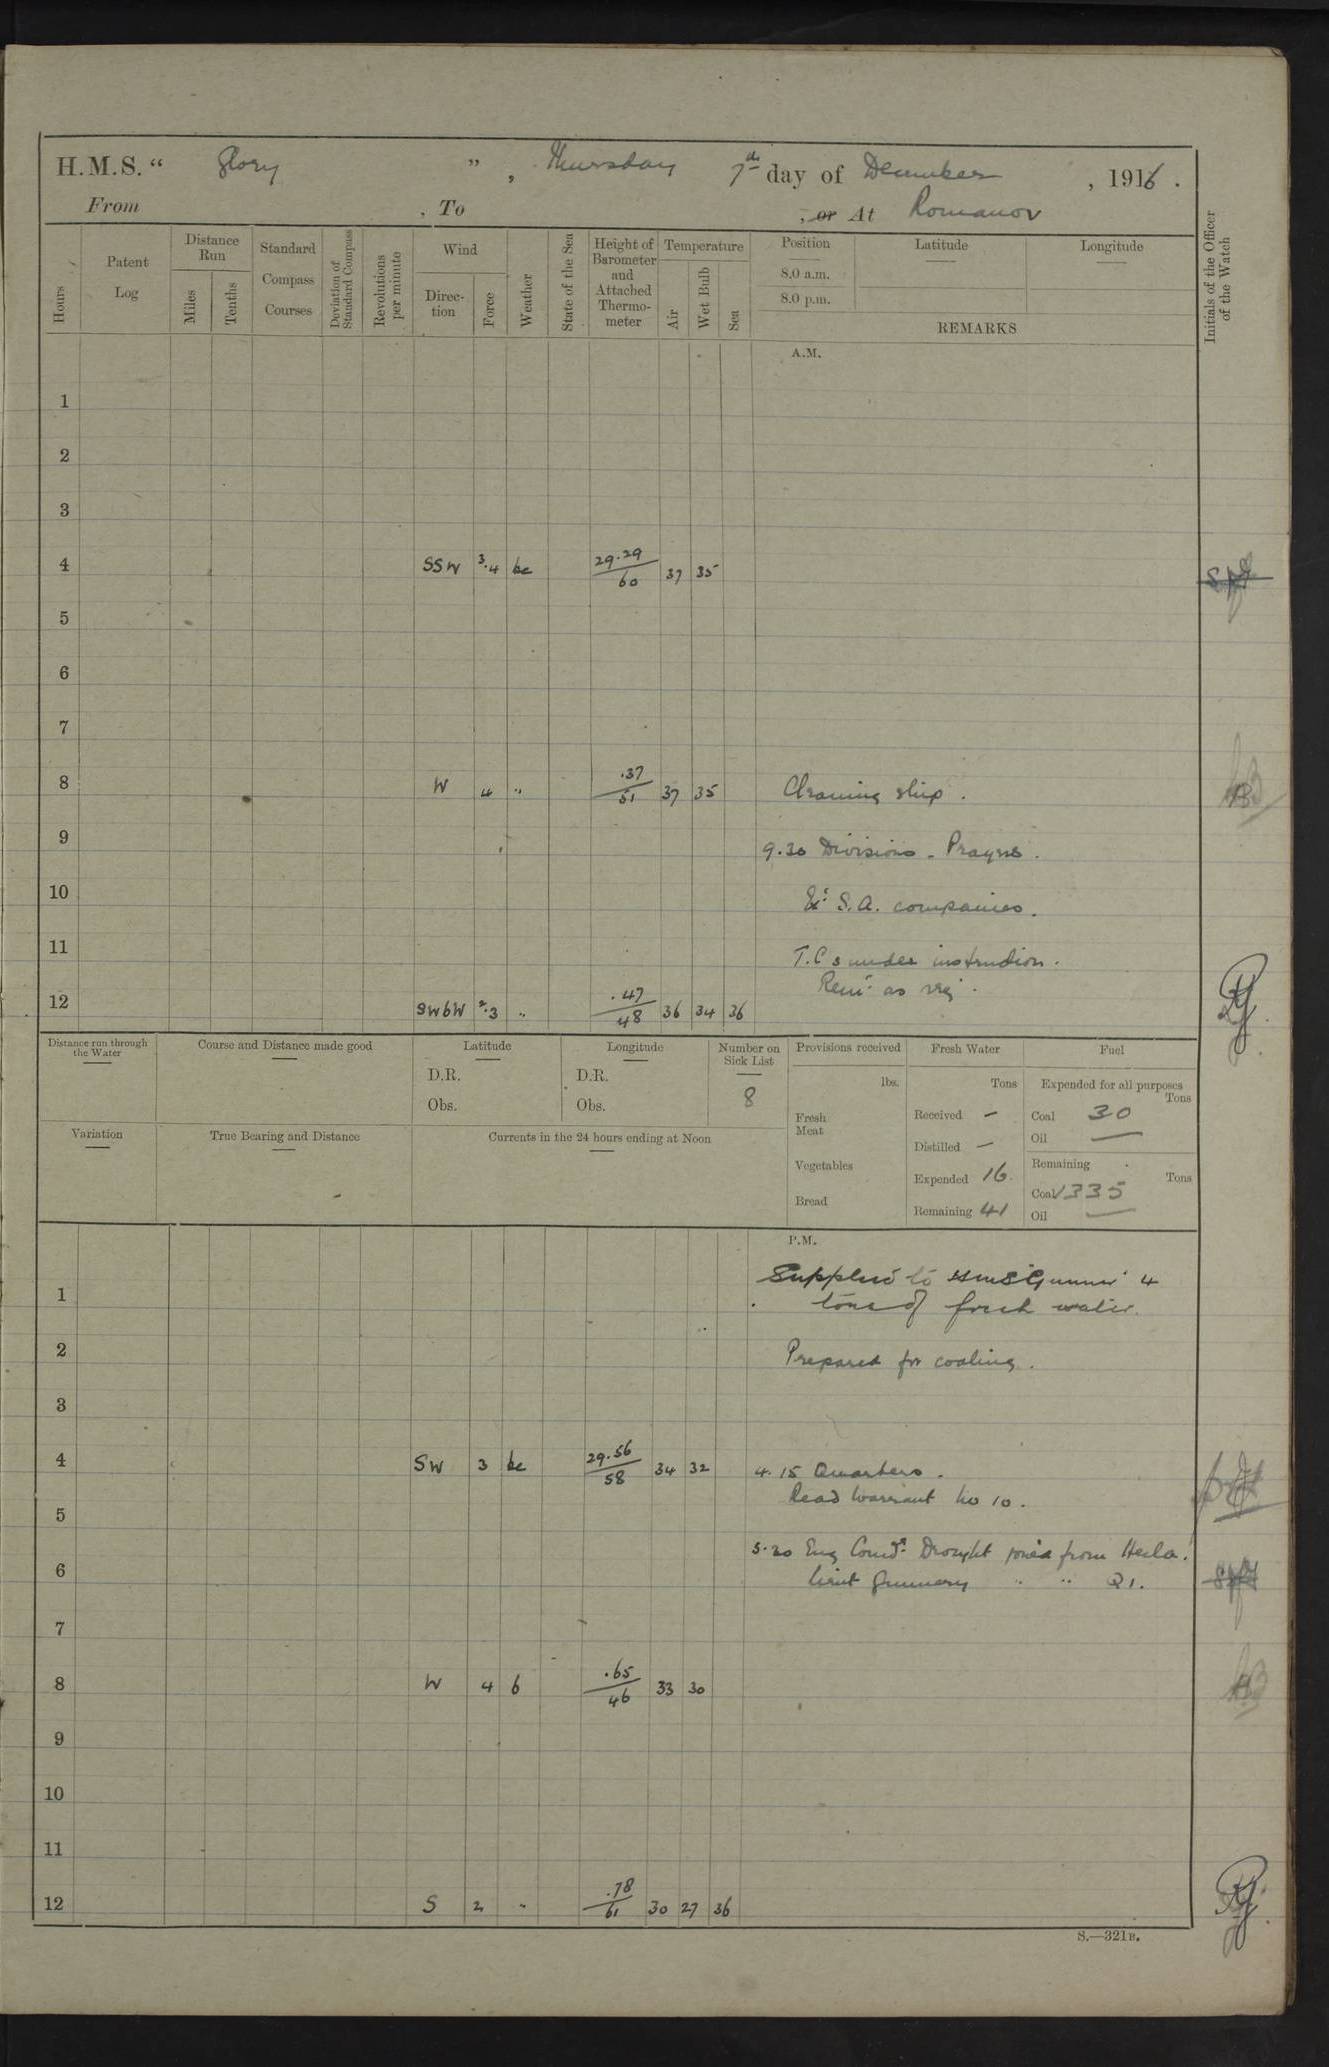 H.M.S. “ Glory ” , Thursday 7th day of December , 1916 .
From , To , or At Romanov
Hours
Patent Log
Distance Run
Miles
Tenths
Standard Compass Courses
Deviation of Standard Compass
Revolutions per minute
Wind
Direction
Force
Weather
State of the Sea
Height of Barometer and Attached Thermometer
Temperature
Air
Wet Bulb
Sea
Position
8.0 a.m.
8.0 p.m.
Latitude
Longitude
REMARKS
Initials of the Officer of the Watch
A.M.
1
2
3
4 SSW 3.4 bc 29.29/60 37 35
5
6
7
8 W 4 " .37/51 37 35 Cleaning ship .
9 9.30 Divisions - Prayers .
10 Ex: S.A. companies .
11 T.C s under instruction .
Rem: as req .
12 SWbW 2.3 " .47/48 36 34 36
Distance run through the Water
Course and Distance made good
Latitude
D.R.
Obs.
Longitude
D.R.
Obs.
Number on Sick List
8
Provisions received
lbs.
Fresh Meat
Vegetables
Bread
Fresh Water
Tons
Received —
Distilled —
Expended 16
Remaining 41
Fuel
Expended for all purposes
Tons
Coal 30
Oil —
Remaining
Tons
Coal 1335
Oil —
Variation
True Bearing and Distance
Currents in the 24 hours ending at Noon
P.M.
Supplied to HMS Gunner 4
1 tons of fresh water.
2 Prepared for coaling .
3
4 SW 3 bc 29.56/58 34 32 4.15 Quarters .
Read Warrant No 10 .
5
5.20 Eng Comdr. joined from Hecla.
6 Lieut " " Q1.
7
8 W 4 b .65/46 33 30
9
10
11
12 S 2 " .78/61 30 27 36
S.—321B.